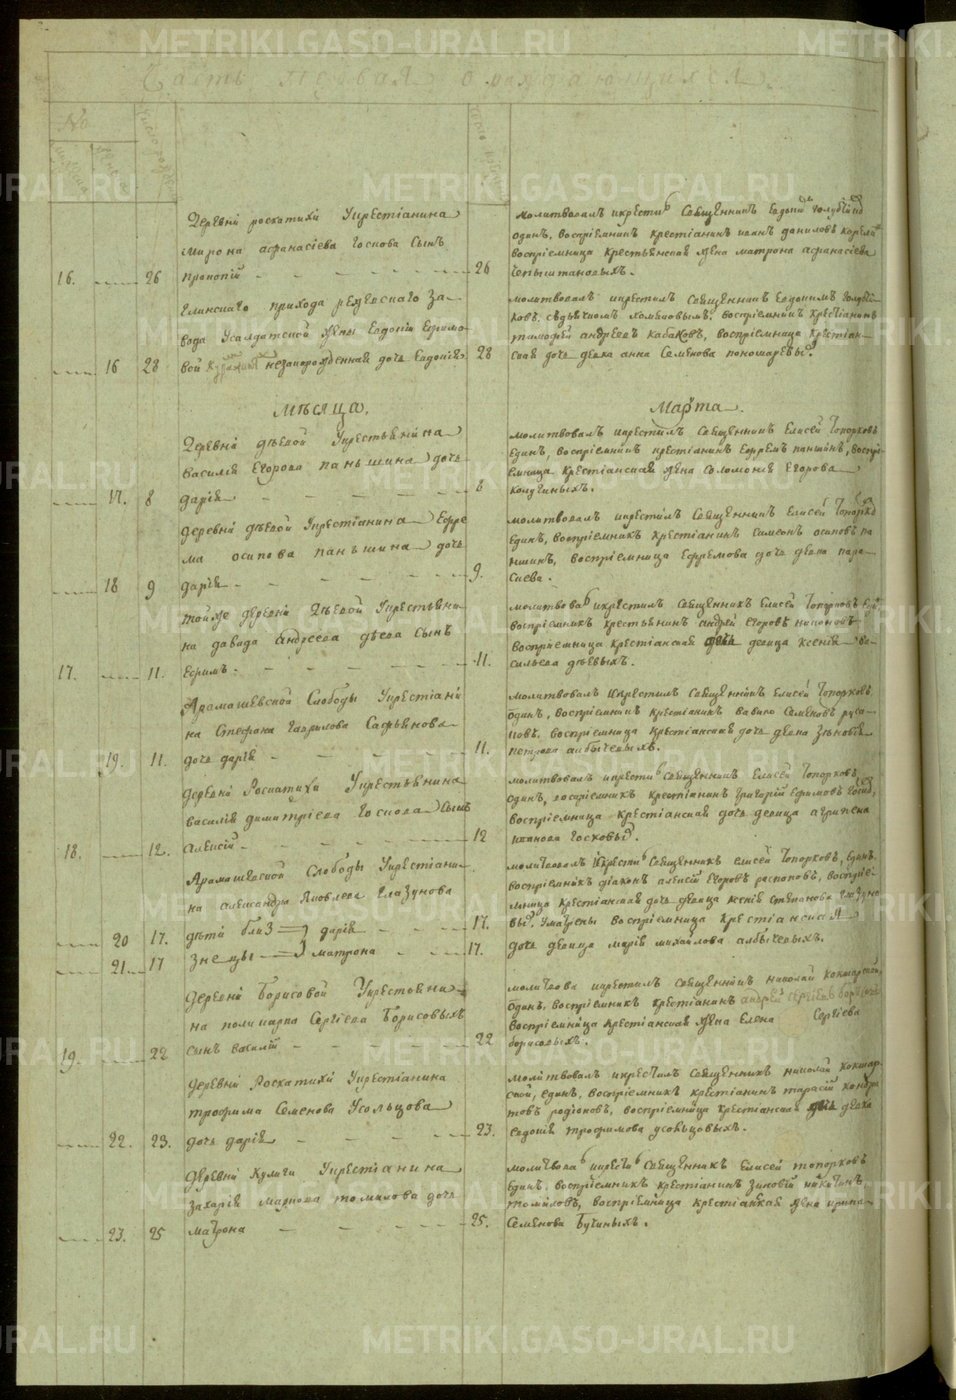 METRIKI.GASO-URAL.RU
Часть первая о рождающихся
№
16. 26 Деревни роскатихи Укрестіанина
мирона афанасіева Госкова Сынъ
прокопій 26
молитвовалъ икрести Священникъ
одинъ, воспріемникъ крестіанинъ иванъ даниловъ
воспріемница крестьянская жена матрона афанасіева
16 28 прихода режевскаго За-
вода Усалдатской жены Евдокіи Ефимо-
вой незаконорожденная дочь Евдокія 28
молитвовалъ икрестилъ Священникъ Евдокимъ
воспріемникъ крестіанинъ
тимофей андреевъ кабаковъ, воспріемница крестіан-
ская дочь девка анна Семенова пономаревы
МѢСЯЦА, Марта.
17. 8 Деревни дѣевой Укрестьянина
василія Егорова паньшина дочь
дарія 8
молитвовалъ икрестилъ Священникъ Елисей Топорковъ
Единъ, воспріемникъ крестіанинъ Ефремъ паншинъ, воспрі-
емница крестіанская жена соломонія Егорова
18 9 деревни дѣевой Укрестіанина Ефре
ма осипова паньшина дочь
дарія 9.
молитвовалъ икрестилъ Священникъ Елисей
Единъ, воспріемникъ крестіанинъ Симеонъ осиповъ па
ншинъ, воспріемница Ефремова дочь девка пара-
скева.
17. 11. тойже деревни Дѣевой Укрестьяни-
на давида Андреева дѣева сынъ
Ефимъ. 11.
молитвова икрестилъ Священникъ Елисей Топорковъ
воспріемникъ крестьянинъ андрей Егоровъ
воспріемница крестіанская девица ксенія ва-
сильева дѣевыхъ.
19. 11. Арамашевской Слободы Укрестіани
на Стефана Гаврилова Сафьянова
дочь дарія 11.
молитвовалъ икрестилъ Священникъ Елисей Топорковъ
одинъ, воспріемникъ крестіанинъ вавило Семеновъ руса-
ковъ, воспріемница крестіанская дочь девка Зеновія
петрова албычевыхъ.
18. 12. деревни Роскатихи Укрестьянина
василія димитріева Госкова Сынъ
алексій 12
молитвовалъ икрести Священникъ Елисей Топорковъ
Одинъ, воспріемникъ крестіанинъ Григорій Ефимовъ
воспріемница крестіанская дочь девица агрипена
иванова Госковы
20 17. Арамашевской Слободы Укрестіани-
на александра Яковлева Глазунова
дѣти близ дарія 17.
21. 17 знецы матрона 17.
молитвовалъ икрести Священникъ елисей Топорковъ, Единъ
воспріемникъ діаконъ алексій Егоровъ распоповъ, воспріе-
мница крестіанская дочь девица ксенія Степанова глазуно
вы. Уматрены воспріемница крестіанская
дочь девица марія михаилова албычевыхъ.
19. 22 деревни Борисовой Укрестьяни-
на поликарпа Сергіева Борисовыхъ
сынъ василій 22
молитвова икрестилъ Священникъ николай кокшарской,
Одинъ, воспріемникъ крестіанинъ андрей сергіевъ борисовъ
воспріемница крестіанская жена Елена Сергіева
борисовыхъ.
22. 23. деревни Роскатихи Укрестіанина
трофима Семенова Усольцова
дочь дарія 23.
молитвовалъ икрестилъ Священникъ николай кокшар-
ской, единъ, воспріемникъ крестіанинъ тарасій кондра
товъ родіоновъ, воспріемница крестіанская девка
Евдокія трофимова усольцовыхъ.
23. 25 деревни Кулиги Укрестіанина
захарія маркова томилова дочь
матрона 25.
молитвова икрести Священникъ Елисей топорковъ
Единъ, воспріемникъ крестіанинъ Зиновій никитинъ
томиловъ, воспріемница крестіанкая жена ирина
Семенова Бучиныхъ.